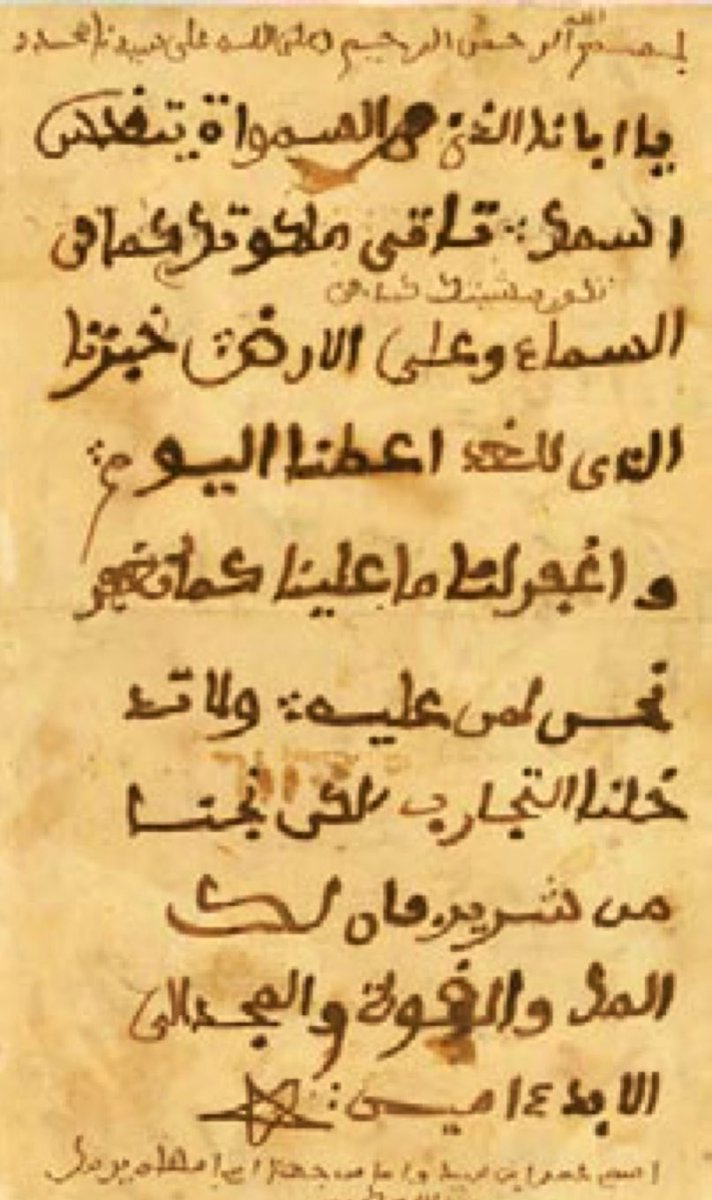 بسم الله الرحمن الرحيم صلى الله على سيدنا محمد
يا ابانا الذي في السمواة يتقدس
اسمك تاتي ملكوتك كما في
تكون مشيتك كما في
السماء وعلى الارض خبزنا
الذي للغد اعطنا اليوم
واغفر لنا ما علينا كما نغفر
نحن لمن عليه ولا تد
خلنا التجارب لكى نجنا
من شرير فان لك
الملك والقوة والمجد الى
الابد ءامين